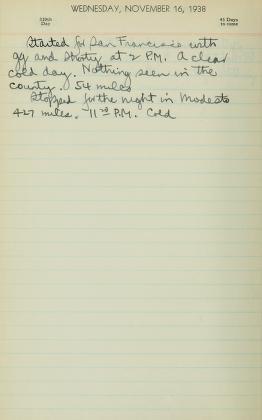 WEDNESDAY, NOVEMBER 16, 1938
320th
Day
45 Days
to come
Started for San Francisco with
gg and Shorty at 2 P.M. A clear
cold day. Nothing seen in the
county. 54 miles
Stopped for the night in Modesto
427 miles. 11 20 P.M. Cold